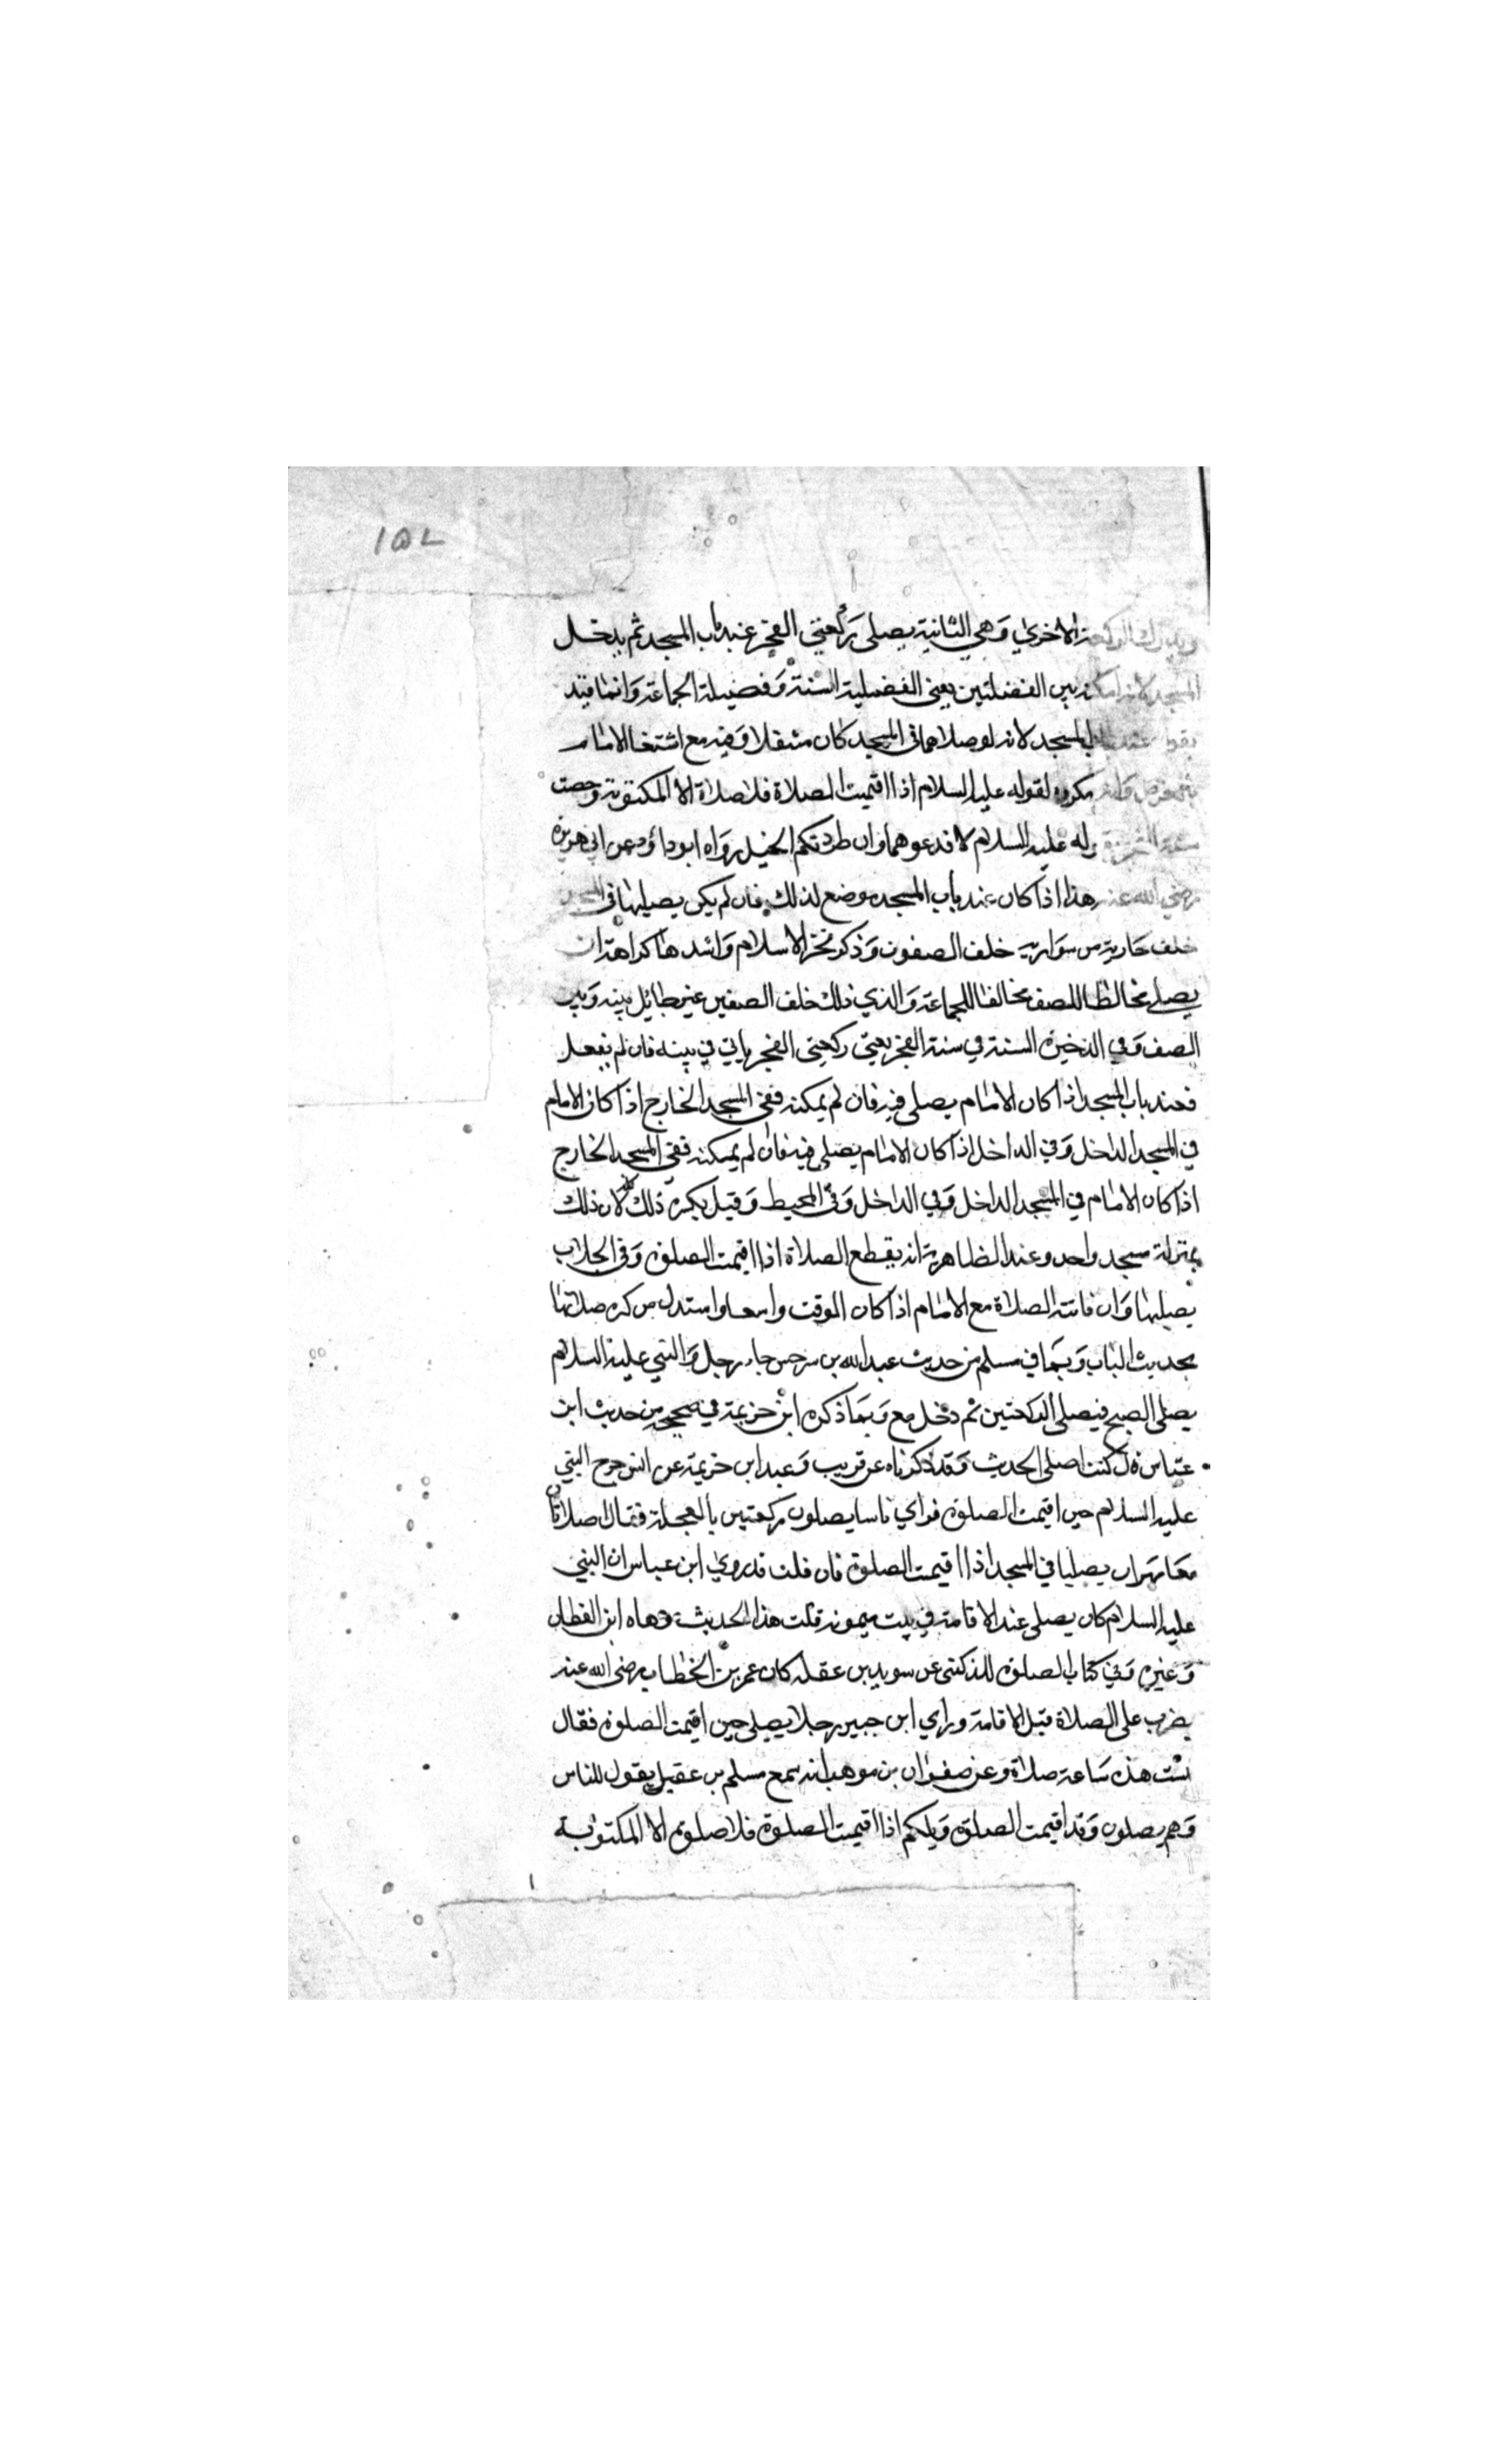 ١٥٧
ويدرك الركعة الاخرى وهي الثانية يصلى ركعتي الفجر عند باب المسجد ثم يدخل
المسجد لانه امكنه بين الفضلتين يعني الفضيلة السنة وفضيلة الجماعة وانما قيد
بقوله عند باب المسجد لانه لو صلاهما في المسجد كان متنفلا فيه مع اشتغال الامام
بالفرض وانه مكروه لقوله عليه السلام اذا اقيمت الصلاة فلا صلاة الا المكتوبة وخصت
سنة الفجر بقوله عليه السلام لا تدعوهما وان طردتكم الخيل رواه ابو داؤد عن ابي هريرة
رضي الله عنه هذا اذا كان عند باب المسجد موضع لذلك فان لم يكن يصليها في المسجد
خلف سارية من سواريه خلف الصفوف وذكر فخر الاسلام واشدها كراهة ان
يصلي مخالطا للصف مخالفا للجماعة والذي ذلك خلف الصفين غير حائل بينه وبين
الصف وفي الذخيرة السنة في سنة الفجر يعني ركعتي الفجر ياتي في بيته فان لم يفعل
فعند باب المسجد اذا كان الامام يصلى فيه فان لم يمكنه ففي المسجد الخارج اذا كان الامام
في المسجد الداخل وفي الداخل اذا كان الامام يصلى فيه فان لم يمكنه ففي المسجد الخارج
اذا كان الامام في المسجد الداخل وفي الداخل وفي المحيط وقيل يكره ذلك لان ذلك
بمنزلة مسجد واحد وعند الظاهرية انه يقطع الصلاة اذا اقيمت الصلوة وفي الجلاب
يصليها وان فاتته الصلاة مع الامام اذا كان الوقت واسعا واستدل من كره صلاتها
بحديث الباب وبما في مسلم من حديث عبد الله بن سرجس جاء رجل والنبي عليه السلام
يصلى الصبح فيصلى الركعتين ثم دخل مع وبما ذكره ابن خزيمة في صحيحه من حديث ابن
عباس قال كنت اصلى الحديث وقد ذكرناه عن قريب وعند ابن خزيمة عن انس خرج النبي
عليه السلام حين اقيمت الصلوة فراي ناسا يصلون ركعتين بالعجلة فقال اصلاتان
معا نهى ان يصليا في المسجد اذا اقيمت الصلوة فان قلت قد روي ابن عباس ان النبي
عليه السلام كان يصلي عند الاقامة في بيت ميمونة قلت هذا الحديث وهاه ابن القطان
وغيره وفي كتاب الصلوة للدكني عن سويد بن عقلة كان عمر بن الخطاب رضي الله عنه
يضرب على الصلاة قبل الاقامة وراي ابن جبير رجلا يصلى حين اقيمت الصلوة فقال
ليست هذه ساعة صلاة وعن صفوان بن موهب انه سمع مسلم بن عقيل يقول للناس
وهم يصلون وقد اقيمت الصلوة ويلكم اذا اقيمت الصلوة فلا صلوة الا المكتوبة